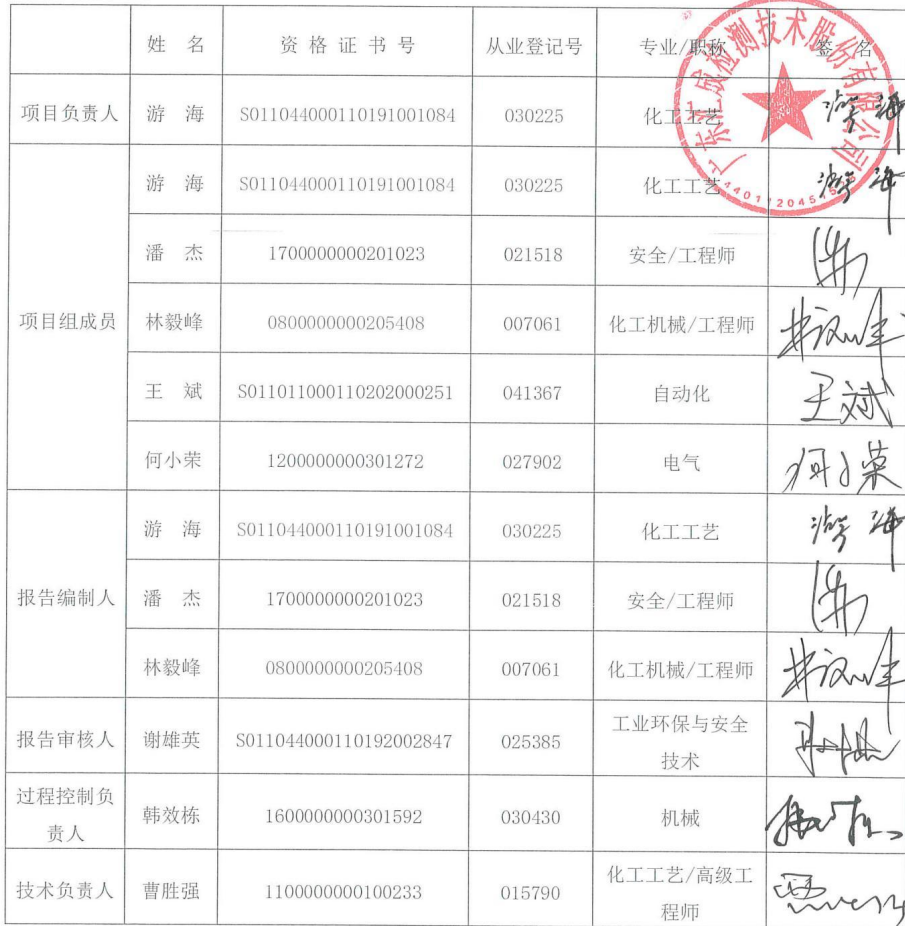 姓 名 资格证书号 从业登记号 专业/职称 签 名
项目负责人 游 海 S011044000110191001084 030225 化工工艺 游海
项目组成员 游 海 S011044000110191001084 030225 化工工艺 游海
潘 杰 1700000000201023 021518 安全/工程师
林毅峰 0800000000205408 007061 化工机械/工程师 林毅峰
王 斌 S011011000110202000251 041367 自动化 王斌
何小荣 1200000000301272 027902 电气 何小荣
报告编制人 游 海 S011044000110191001084 030225 化工工艺 游海
潘 杰 1700000000201023 021518 安全/工程师
林毅峰 0800000000205408 007061 化工机械/工程师 林毅峰
报告审核人 谢雄英 S011044000110192002847 025385 工业环保与安全
技术
过程控制负
责人 韩效栋 1600000000301592 030430 机械
技术负责人 曹胜强 1100000000100233 015790 化工工艺/高级工
程师